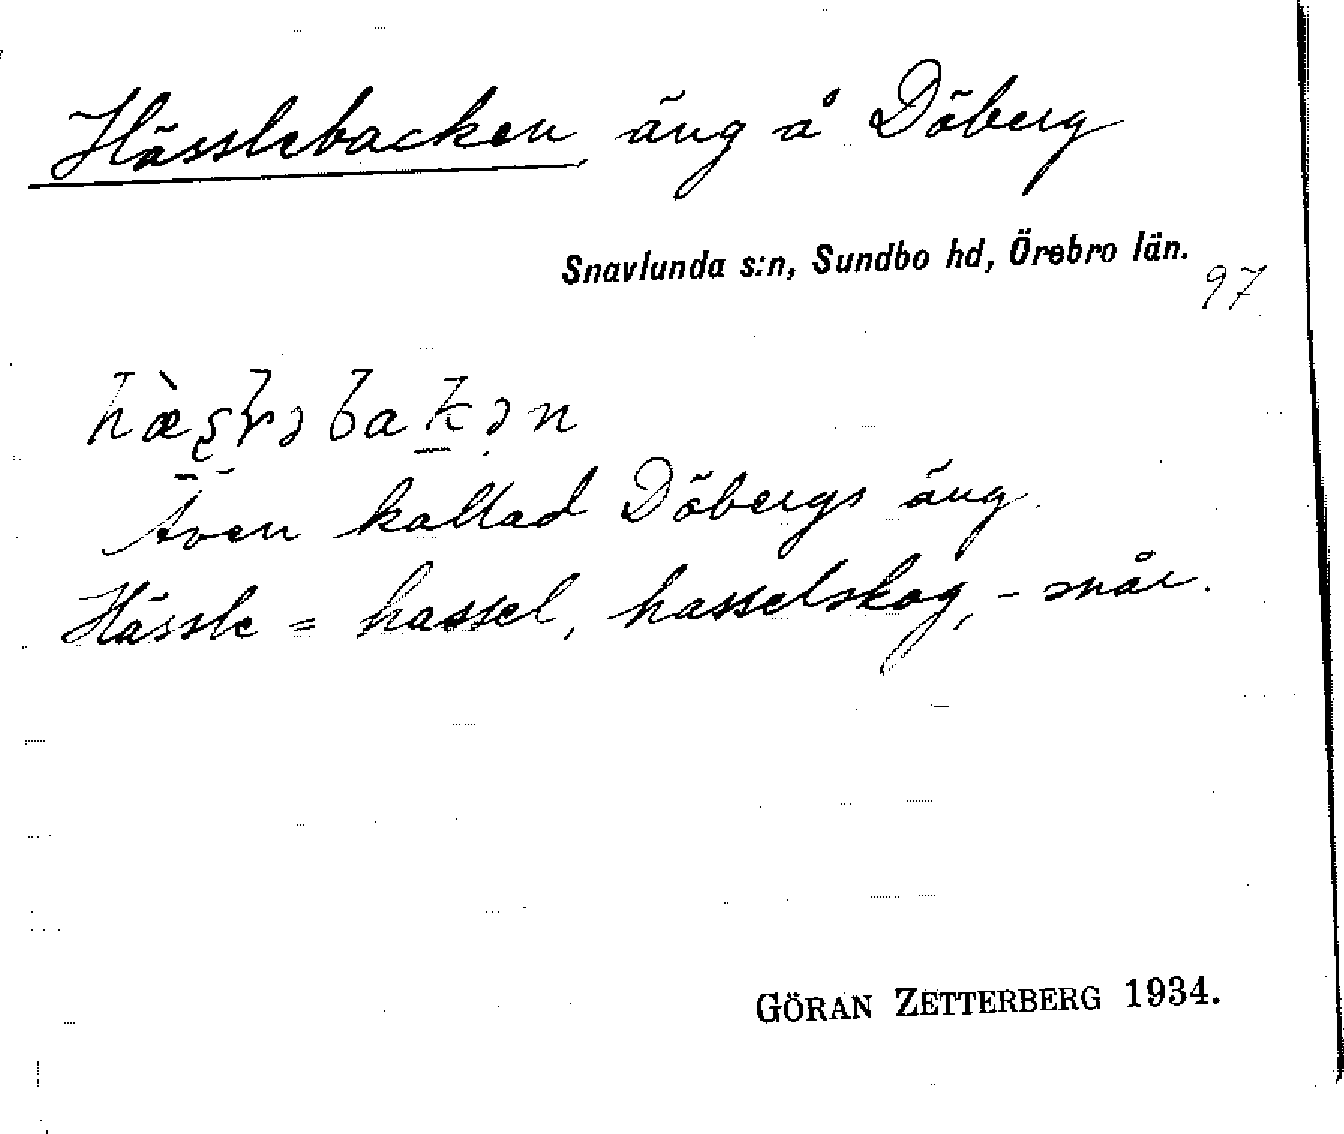 Hässlebacken, äng å Döberg
Snavlunda s:n, Sundbo hd, Örebro län.
97
Även kallad Döbergs äng.
Hässle = hassel, hasselskog, -snår.
GÖRAN ZETTERBERG 1934.